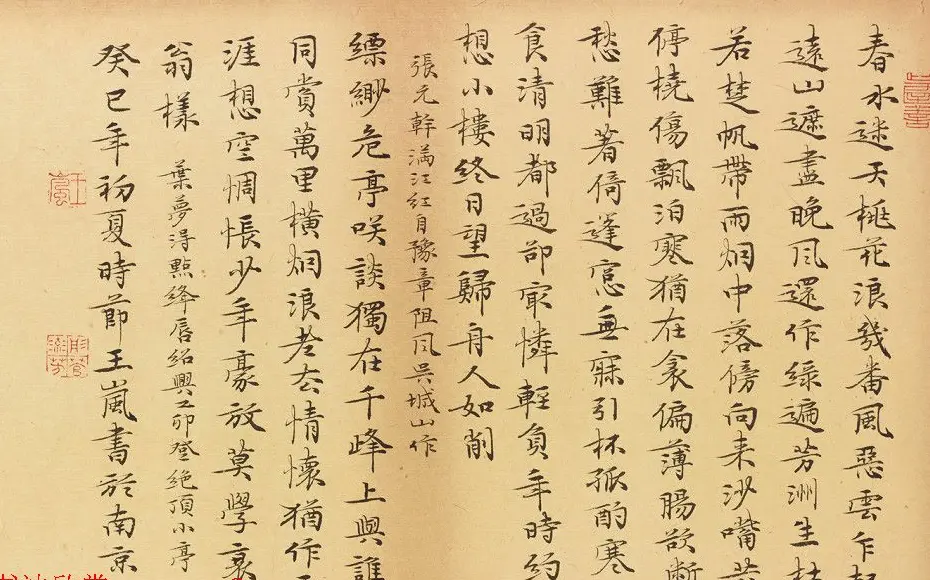 春水迷天桃花浪幾番風惡雲乍起
遠山遮盡晚風還作綠遍芳洲生杜
若楚帆帶雨烟中落傍向來沙嘴共
停橈傷飄泊寒猶在衾偏薄腸欲斷
愁難著倚篷窓無寐引杯孤酌寒
食清明都過卻宼憐輕負年時約
想小樓終日望歸舟人如削
張元幹滿江紅自豫章阻風吳城山作
縹緲危亭咲談獨在千峰上與誰
同賞萬里橫烟浪老去情懷猶作天
涯想空惆悵少年豪放莫學衰
翁樣
葉夢得點絳唇紹興乙卯登絕頂小亭
癸巳年初夏時節王嵐書於南京